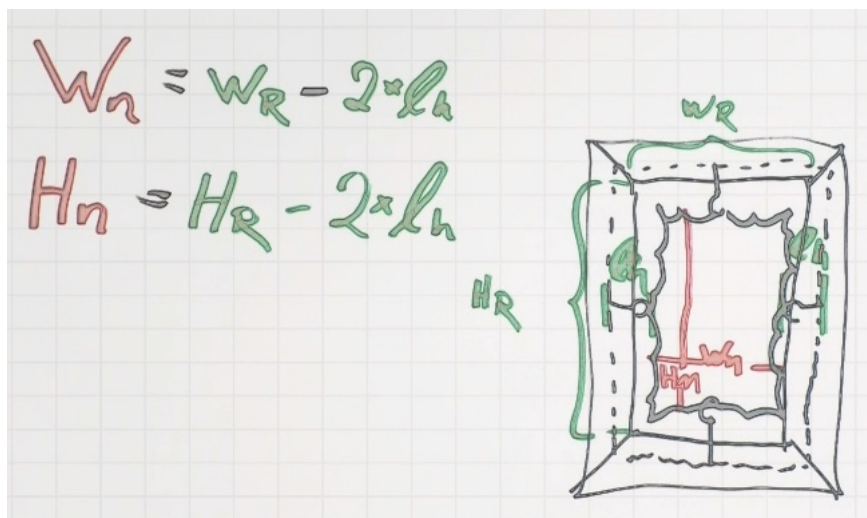 Wn = WR - 2*lh
Hn = HR - 2*lh
WR
lh
lh
HR
Wn
Hn